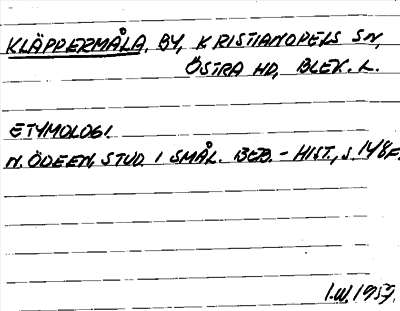 KLÄPPERMÅLA, BY, KRISTIANOPELS SN,
ÖSTRA HD, BLEK. L.
ETYMOLOGI.
N. ÖDEEN, STUD. I SMÅL. BEB. - HIST., S. 148 F.
I.W. 1957.